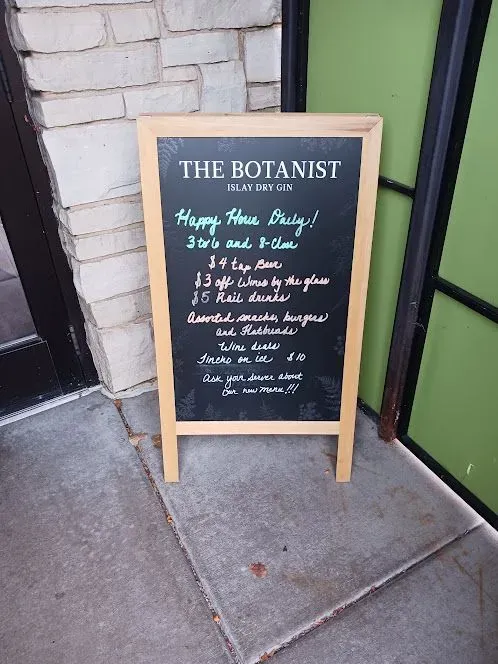 THE BOTANIST
ISLAY DRY GIN
Happy Hour Daily!
3 to 6 and 8-Close
$4 tap Beer
$3 off Wines by the glass
$5 Rail drinks
Assorted snacks, burgers
and Flatbreads
Wine deals
on ice $10
Ask your server about
Our new menu!!!